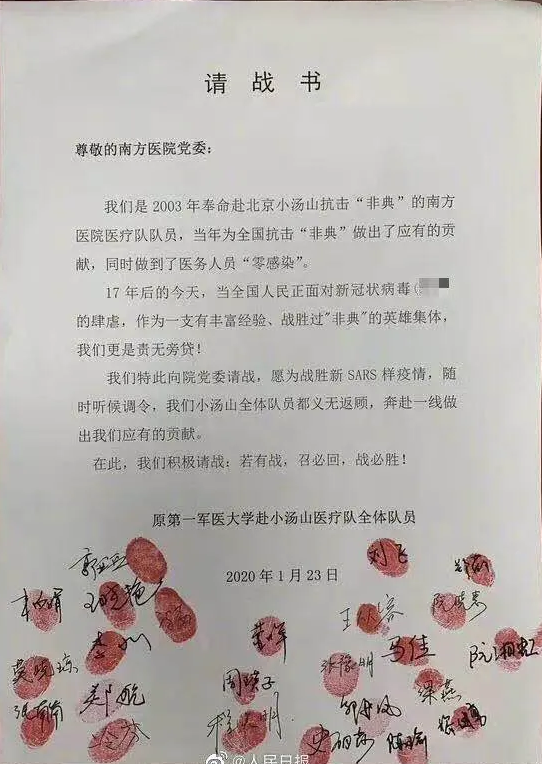 请战书
尊敬的南方医院党委：
我们是2003年奉命赴北京小汤山抗击“非典”的南方
医院医疗队队员，当年为全国抗击“非典”做出了应有的贡
献，同时做到了医务人员“零感染”。
17年后的今天，当全国人民正面对新冠状病毒(
的肆虐，作为一支有丰富经验、战胜过"非典"的英雄集体，
我们更是责无旁贷！
我们特此向院党委请战，愿为战胜新SARS样疫情，随
时听候调令，我们小汤山全体队员都义无返顾，奔赴一线做
出我们应有的贡献。
在此，我们积极请战：若有战，召必回，战必胜！
原第一军医大学赴小汤山医疗队全体队员
2020年1月23日
刘飞
马佳
梁燕
@人民日报